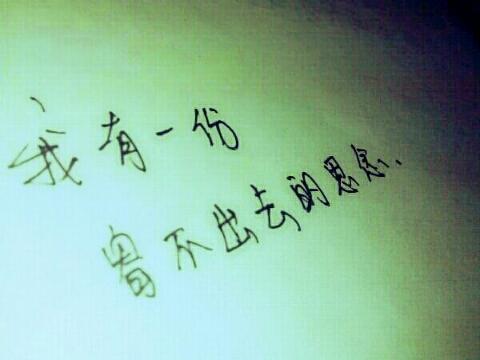 我有一份
不出去的思念.